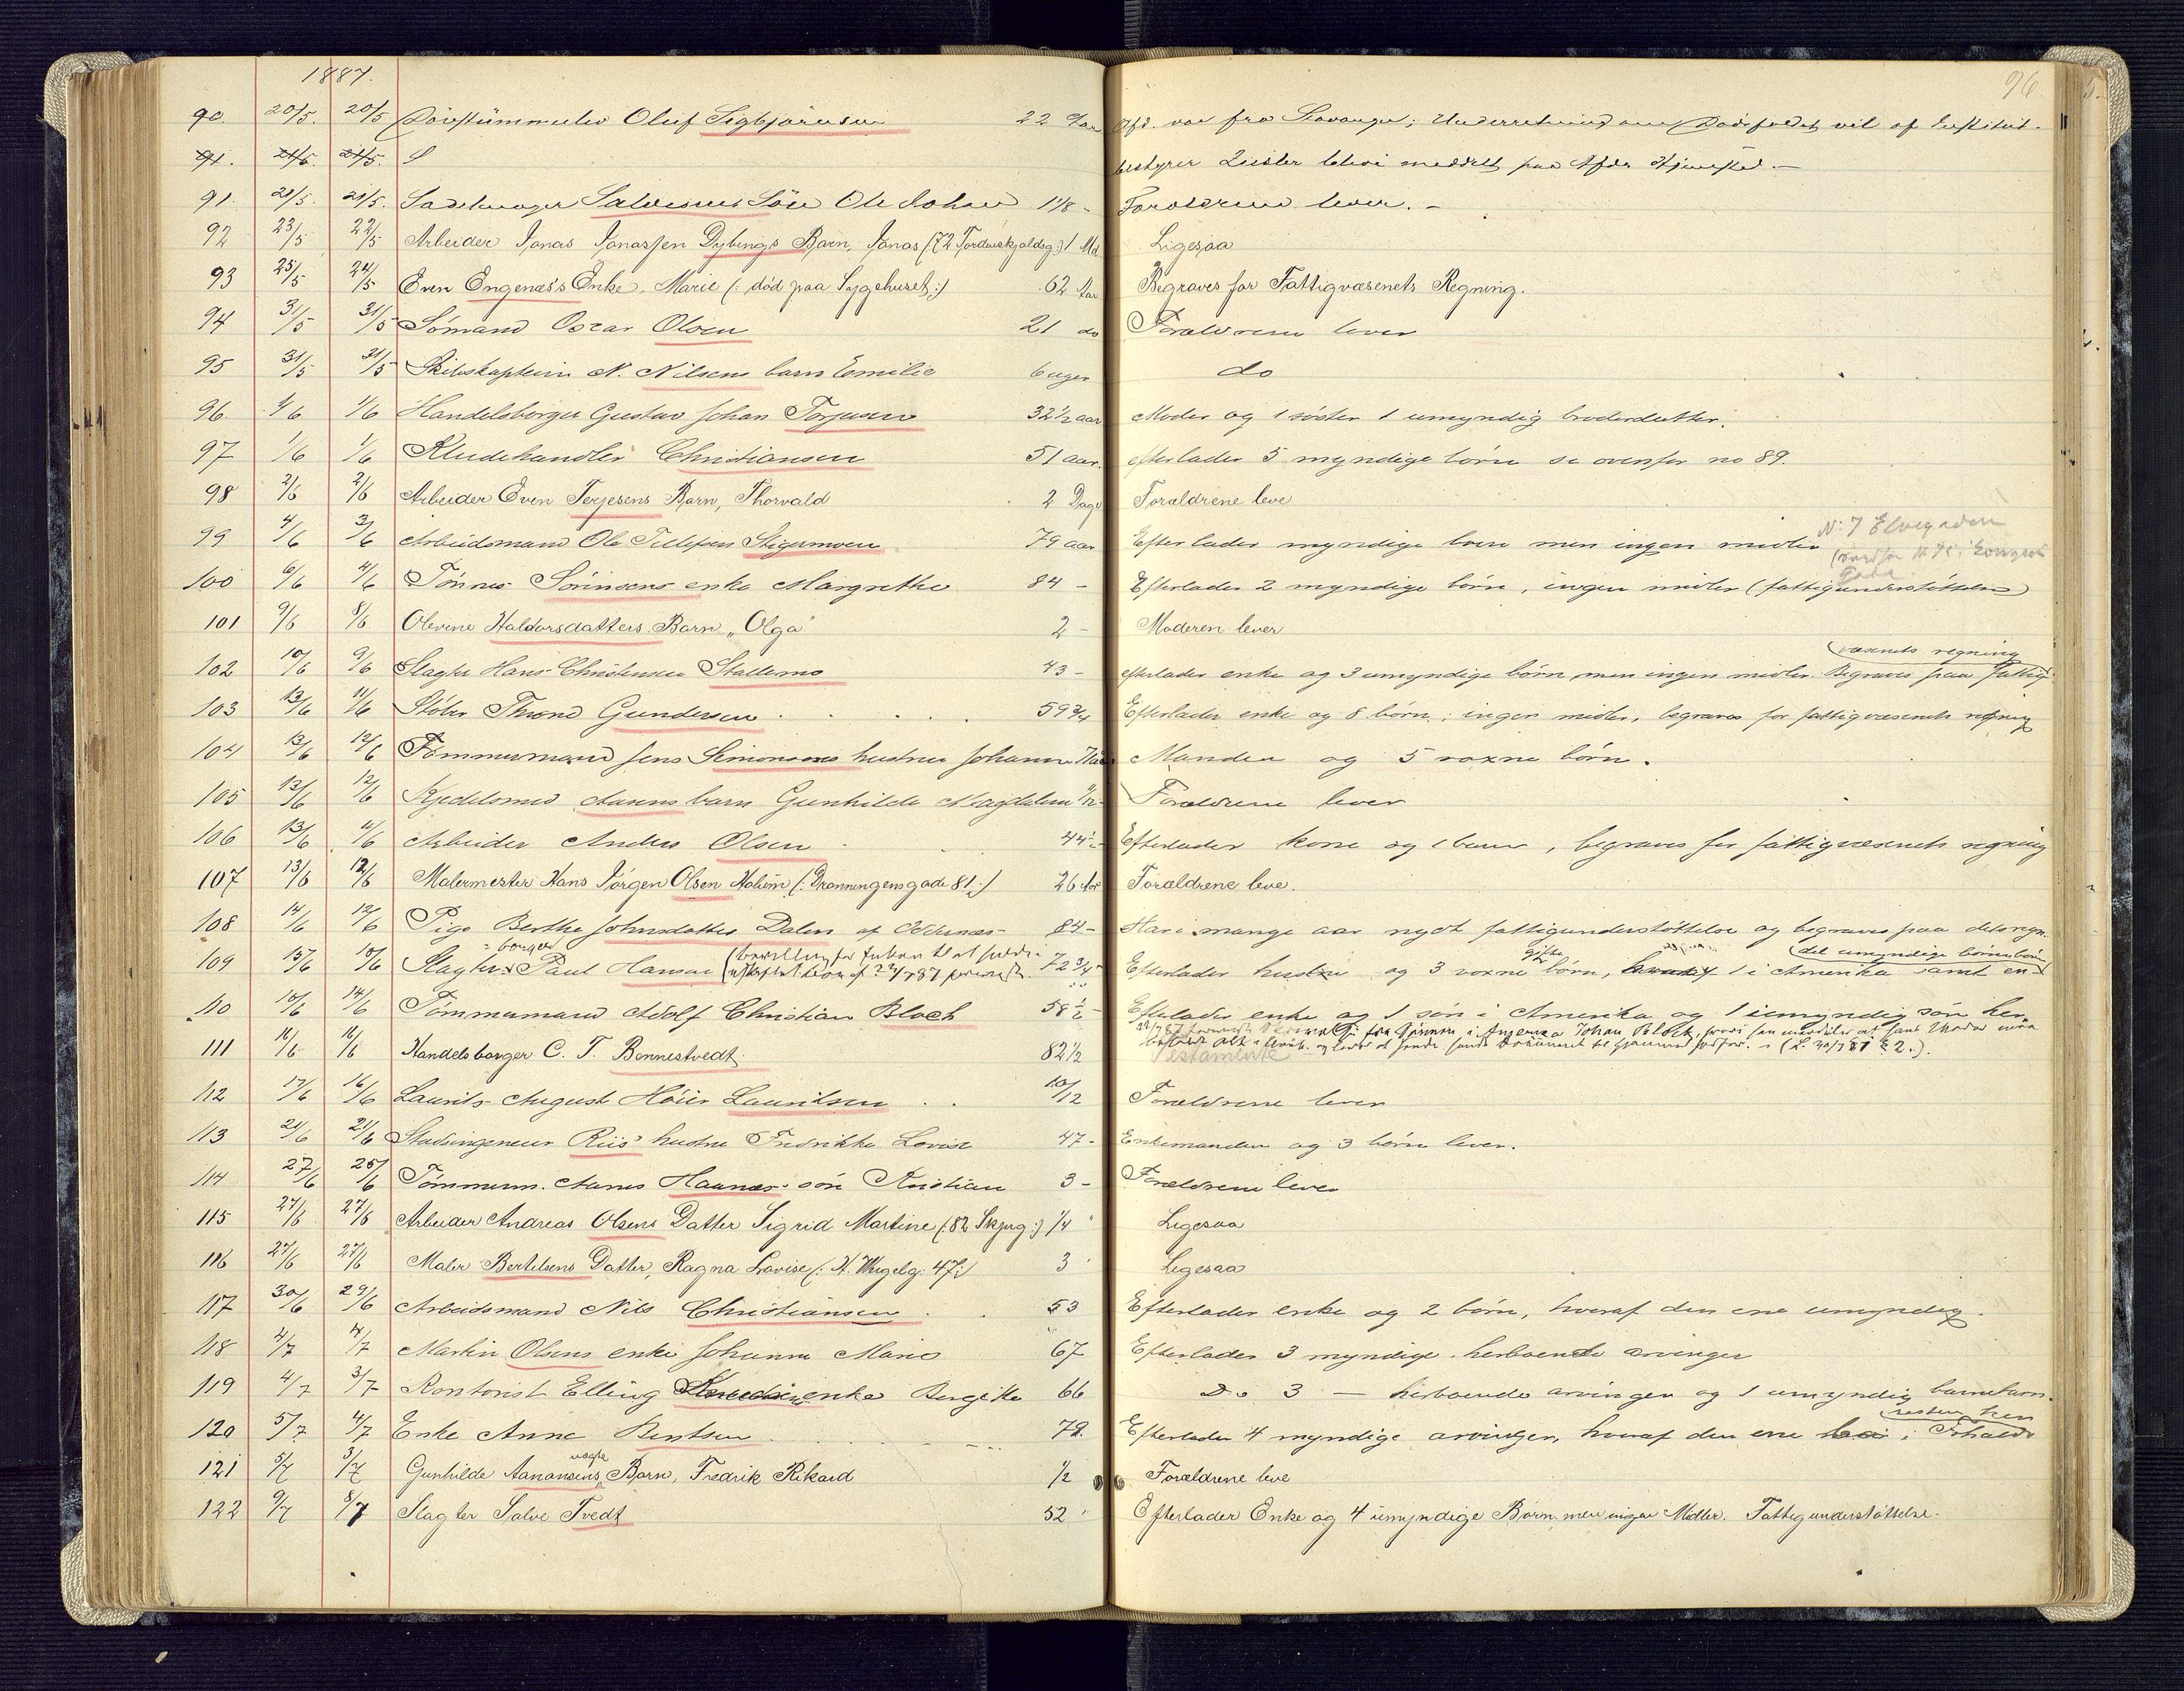 1887.
96
90. 20/5. 20/5 Døvstummelev Oluf Sigbjørnsen 22 Aar Afd. var fra Stavanger; Underretning om Dødsfaldet vil af Institut-
91. 21/5. 21/5. S bestyrer blive meddelt paa Afdes Hjemsted. –
91. 21/5. 21/5. Sadelmager Salvesens Søn Ole Johan 1 1/8 - Forældrene lever. –
92 23/5 22/5 Arbeider Jonas Jonassen Dybings Barn, Jonas (72 Tordenskjoldsg:) 1 Md Ligesaa
93 25/5 24/5 Even Engenæs's Enke, Marie (: død paa Sygehuset:) 62 Aar Begraves for Fattigvæsenets Regning.
94 31/5 31/5 Sømand Oscar Olsen 21 do Forældrene lever
95 31/5 31/5 Skibskaptein N. Nilsens barn Emilie 6 uger do
96. 1/6 1/6 Handelsborger Gustav Johan Torjusen 32 1/2 aar Moder og 1 søster 1 umyndig broderdatter.
97 1/6 1/6 Kludehandler Christiansen 51 aar. efterlader 5 myndige børn se ovenfor no 89.
98 2/6 2/6 Arbeider Even Terjesens Barn, Thorvald 2 Dage Forældrene leve
99 4/6 3/6 Arbeidsmand Ole Tellefsen Stigermoen 79 aar Efterlader myndige børn men ingen midler N: 7 Elvegaden
100 6/6 4/6 Tønnes Sørinsens enke Margrethe 84 – Efterlader 2 myndige børn, ingen midler (fattigunderstøttelse)
101 9/6 8/6 Olevine Haldorsdatters Barn „Olga" 2 – Moderen lever
102 10/6 9/6 Slagter Hans Christensen Stallemo 43 – efterlader enke og 3 umyndige børn men ingen midler. Begraves paa fattig-
væsenets regning
103 13/6 11/6 Støber Thrond Gundersen 59 3/4 Efterlader enke og 8 børn; ingen midler, begraves for fattigvæsenets regning
104 13/6 12/6 Tømmermand Jens Simonsens hustru Johanne Manden og 5 voxne børn.
105 13/6 12/6 Kjedelsmed Aanens barn Gunhilde Magdalene Forældrene lever
106 13/6 11/6 Arbeider Anders Olsen 44 1/2 Efterlader kone og 1 barn, begraves for fattigvæsenets regning
107 13/6 12/6 Malermester Hans Jørgen Olsen Holum (: Dronningensgade 81:) 26 Aar Forældrene leve.
108 14/6 12/6 Pige Berthe Johnsdatter Dalen af Oddernæs 84 – Har i mange aar nydt fattigunderstøttelse og begraves paa dets regn.
109 15/6 15/6 Slagter- borger Paul Hansen 72 3/4 – Efterlader hustru og 3 voxne gifte børn, hvoraf 1 i Amerika samt en
del umyndige børnebørn
110 15/6 14/6 Tømmermand Adolf Christian Bloch 58 1/2 – Efterlader enke og 1 søn i Amerika og 1 umyndig søn her.
111 16/6 16/6 Handelsborger C. T. Bennestvedt 82 1/2 Testamente
112 17/6 16/6 Laurits August Høier Lauritsen 10/12 Forældrene lever
113 21/6 21/6 Stadsingeneur Riis' hustru Fredrikke Lovise 47 – Enkemanden og 3 børn lever.
114 27/6 25/6 Tømmerm. Aanes Haanes' søn Kristian 3 – Forældrene lever
115 27/6 27/6 Arbeider Andreas Olsens Datter Sigrid Martine (: 82 Skjerg:) 1/4 " Ligesaa
116 27/6 27/6 Maler Bertelsens Datter, Ragna Lovise (: H. Wergelg. 47:) 3 " Ligesaa
117 30/6 29/6 Arbeidsmand Nils Christiansen 53 Efterlader enke og 2 børn, hvoraf den ene umyndig.
118 4/7 4/7 Martin Olsens enke Johanne Marie 67 Efterlader 3 myndige herboende arvinger
119 4/7 3/7 Kontorist Elling enke Bergitte 66 Do 3 — herboende arvinger og 1 umyndig barnebarn.
120 5/7 4/7 Enke Anne Bentsen 79. Efterlader 4 myndige arvinger, hvoraf den ene i
resten her
121 5/7 3/7 Gunhilde Aanonsens uægte Barn, Fredrik Rikard 1/2 Forældrene leve
122 9/7 8/7 Slagter Salve Tvedt 52 " Efterlader Enke og 4 umyndige Børn, men ingen Midler. Fattigunderstøttelse.